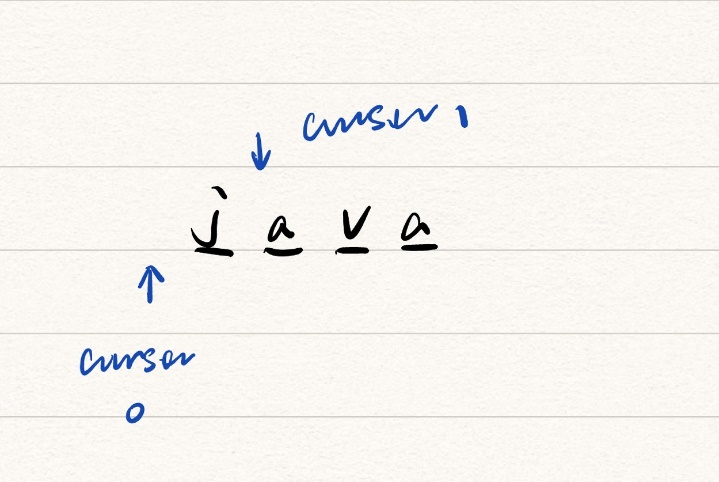 cursor 1
j a v a
cursor
0